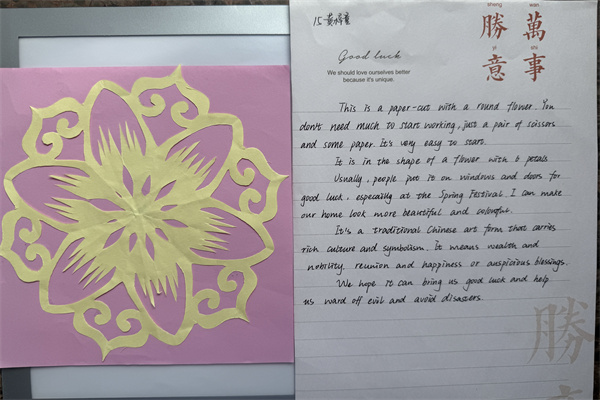 15黄梓童
Good luck
We should love ourselves better
because it's unique.
sheng
勝
yi
意
wan
萬
shi
事
This is a paper-cut with a round flower. You
don't need much to start working, just a pair of scissors
and some paper. It's very easy to start.
It is in the shape of a flower with 6 petals
Usually, people put it on windows and doors for
good luck, especially at the Spring Festival. I can make
our home look more beautiful and colourful.
It's a traditional Chinese art form that carries
rich culture and symbolism. It means wealth and
nobility, reunion and happiness or auspicious blessings.
We hope it can bring us good luck and help
us ward off evil and avoid disasters
勝
意